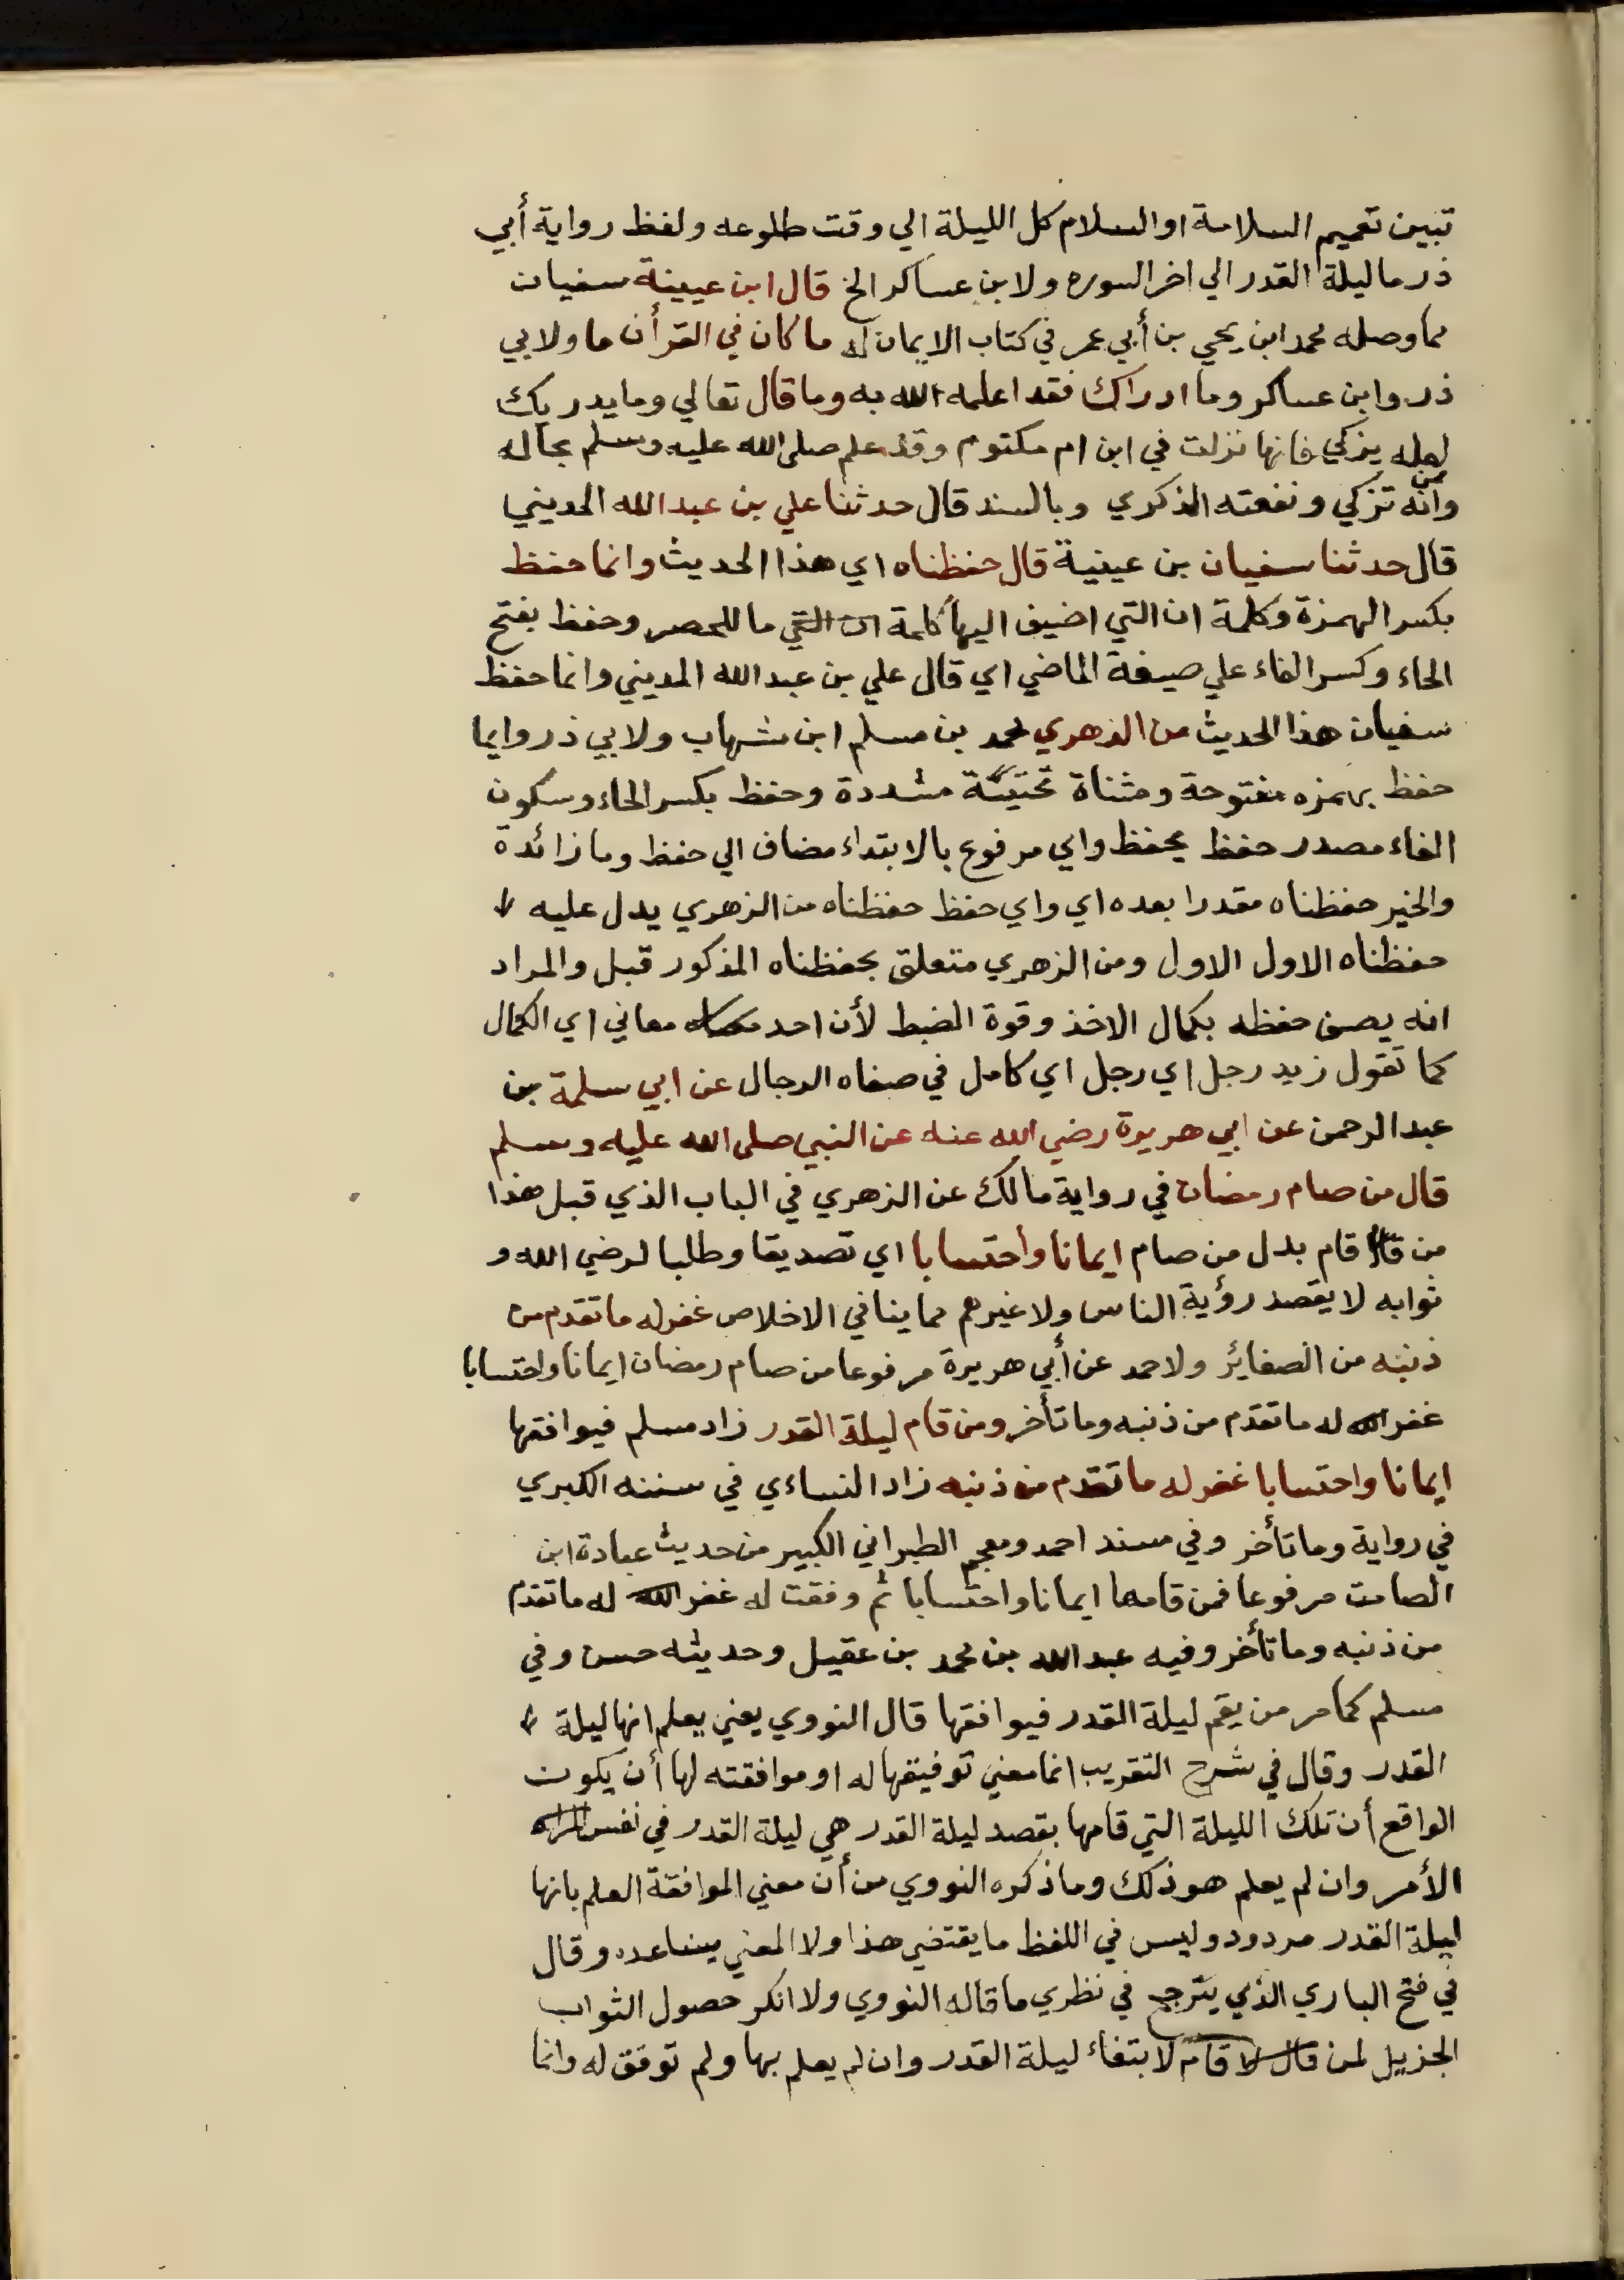 تبين تعميم السلامة او السلام كل الليلة الي وقت طلوعه ولفظ رواية أبي
ذر ما ليلة القدر الي اخر السوره ولابن عساكر الخ قال ابن عيينة سفيان
مما وصله محمد ابن يحي بن أبي عمر في كتاب الايمان له ما كان في القرأن ما ولابي
ذر وابن عساكر وما ادراك فقد اعلمه الله به وما قال تعالي وما يدريك
لعله يزكي فانها نزلت في ابن ام مكتوم وقد علم صلى الله عليه وسلم بحاله
وانه ممن تزكي ونفعته الذكري وبالسند قال حدثنا علي بن عبد الله المديني
قال حدثنا سفيان بن عيينة قال حفظناه اي هذا الحديث وانما حفظ
بكسر الهمزة وكلمة ان التي اضيف اليها كلمة ان التي ما للحصر وحفظ بفتح
الحاء وكسر الفاء علي صيغة الماضي اي قال علي بن عبد الله المديني وانما حفظ
سفيان هذا الحديث من الزهري محمد بن مسلم ابن شهاب ولابي ذر وايما
حفظ بهمزه مفتوحة ومثناة تحتيّة مشددة وحفظ بكسر الحاء وسكون
الفاء مصدر حفظ يحفظ واي مرفوع بالابتداء مضاف الي حفظ وما زائدة
والخبر حفظناه مقدرا بعده اي واي حفظ حفظناه من الزهري يدل عليه
حفظناه الاول الاول ومن الزهري متعلق بحفظناه المذكور قبل والمراد
انه يصف حفظه بكمال الاخذ وقوة الضبط لأن احد معاني اي الكمال
كما تقول زيد رجل اي رجل اي كامل في صفاه الرجال عن ابي سلمة بن
عبد الرحمن عن ابي هريرة رضي الله عنه عن النبي صلى الله عليه وسلم
قال من صام رمضان في رواية مالك عن الزهري في الباب الذي قبل هذا
من قال قام بدل من صام ايمانا واحتسابا اي تصديقا وطلبا لرضي الله و
ثوابه لا يقصد رؤية الناس ولا غيرهم مما ينافي الاخلاص غفر له ما تقدم من
ذنبه من الصغائر ولاحمد عن أبي هريرة مرفوعا من صام رمضان ايمانا واحتسابا
غفر الله له ما تقدم من ذنبه وما تأخر ومن قام ليلة القدر زاد مسلم فيوافقها
ايمانا واحتسابا غفر له ما تقدم من ذنبه زاد النساءي في سننه الكبري
في رواية وما تأخر وفي مسند احمد ومعجم الطبراني الكبير من حديث عبادة ابن
الصامت مرفوعا فمن قامها ايمانا واحتسابا ثم وفقت له غفر الله له ما تقدم
من ذنبه وما تأخر وفيه عبد الله بن محمد بن عقيل وحديثه حسن وفي
مسلم كما مر من يقم ليلة القدر فيوافقها قال النووي يعني يعلم انها ليلة
القدر وقال في شرح التقريب انما معني توفيقها له او موافقته لها أن يكون
الواقع أن تلك الليلة التي قامها بقصد ليلة القدر هي ليلة القدر في نفس
الأمر وان لم يعلم هو ذلك وما ذكره النووي من أن معني الموافقة العلم بانها
ليلة القدر مردود وليس في اللفظ ما يقتضي هذا ولا المعني يساعده وقال
في فتح الباري الذي يترجح في نظري ما قاله النووي ولا انكر حصول الثواب
الجزيل لمن قال لا قام لابتغاء ليلة القدر وان لم يعلم بها ولم توفق له وانما